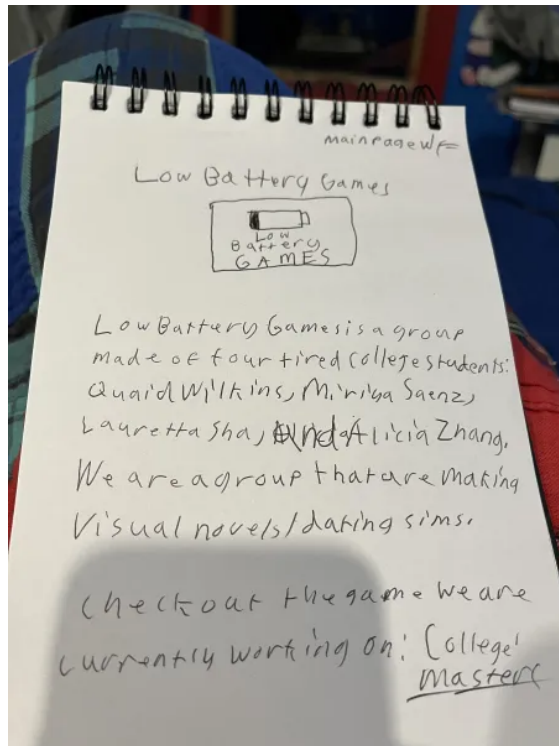 mainpage wf=
Low Battery Games
Low
Battery
GAMES
Low Battery Games is a group
made of four tired college students:
Quaid Wilkins, Miriya Saenz,
Lauretta Sha, And Alicia Zhang.
We are a group that are making
Visual novels/dating sims.
Check out the game we are
currently working on: College!